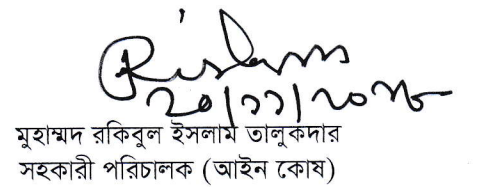 ২০/১১/২০১৮
মুহাম্মদ রকিবুল ইসলাম তালুকদার
সহকারী পরিচালক (আইন কোষ)